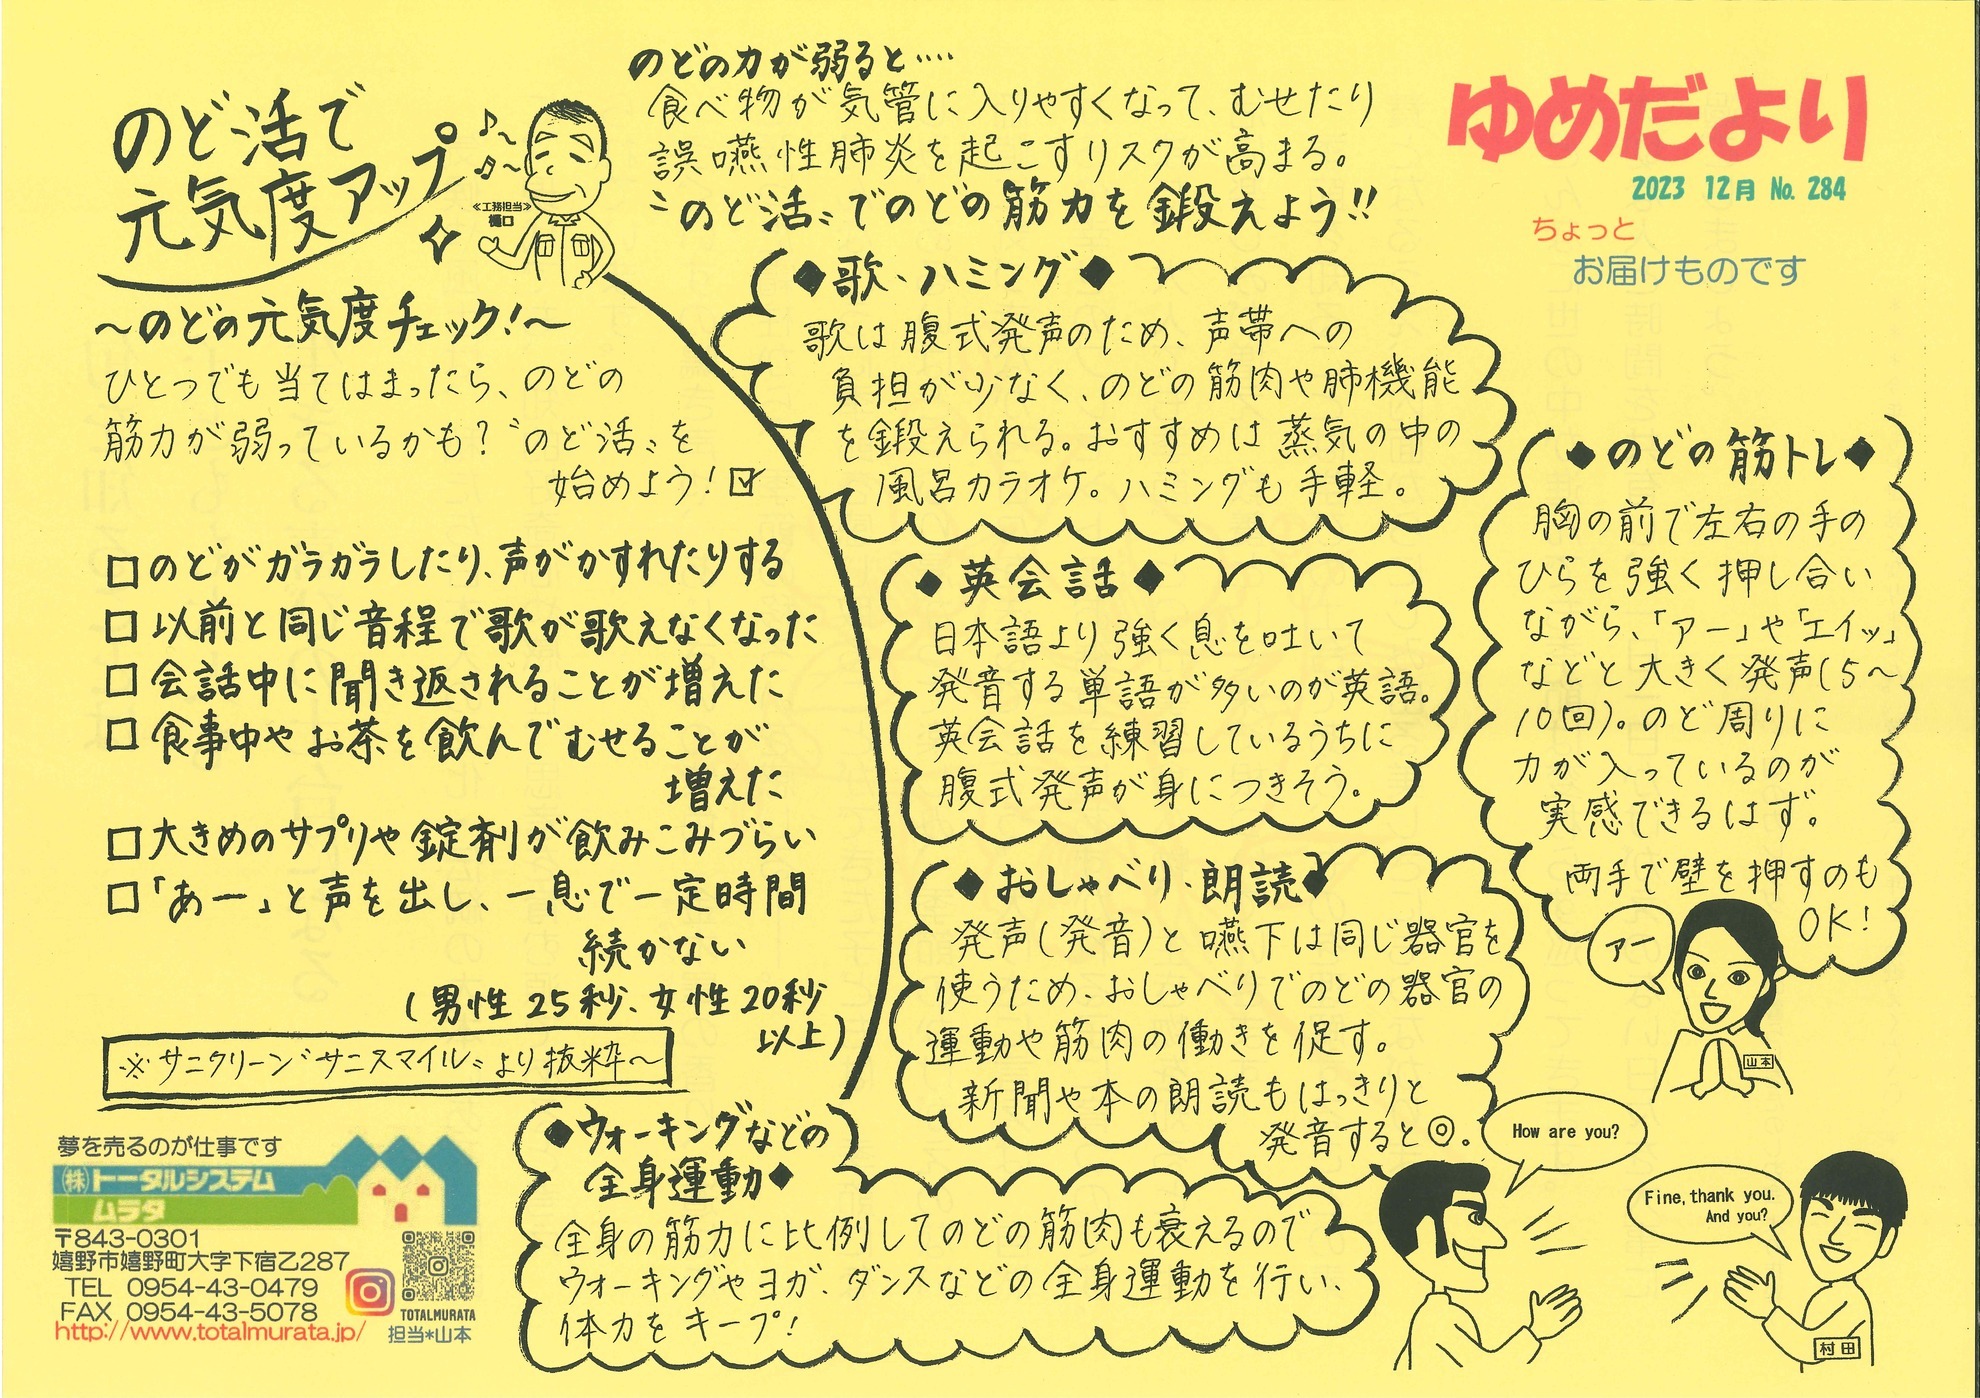 ゆめだより
2023 12月 No. 284
ちょっと
お届けものです
のど活で
元気度アップ
≪工務担当≫
樋口
のどの力が弱ると‥‥
食べ物が気管に入りやすくなって、むせたり
誤嚥性肺炎を起こすリスクが高まる。
〝のど活〟でのどの筋力を鍛えよう!!
～のどの元気度チェック!～
ひとつでも当てはまったら、のどの
筋力が弱っているかも?〝のど活〟を
始めよう!☑
□のどがガラガラしたり、声がかすれたりする
□以前と同じ音程で歌が歌えなくなった
□会話中に聞き返されることが増えた
□食事中やお茶を飲んでむせることが
増えた
□大きめのサプリや錠剤が飲みこみづらい
□「あー」と声を出し、一息で一定時間
続かない
(男性25秒、女性20秒
以上)
※サニクリーン〝サニスマイル〟より抜粋～
◆歌・ハミング◆
歌は腹式発声のため、声帯への
負担が少なく、のどの筋肉や肺機能
を鍛えられる。おすすめは蒸気の中の
風呂カラオケ。ハミングも手軽。
◆英会話◆
日本語より強く息を吐いて
発音する単語が多いのが英語。
英会話を練習しているうちに
腹式発声が身につきそう。
◆おしゃべり・朗読◆
発声(発音)と嚥下は同じ器官を
使うため、おしゃべりでのどの器官の
運動や筋肉の働きを促す。
新聞や本の朗読もはっきりと
発音すると◎。
◆のどの筋トレ◆
胸の前で左右の手の
ひらを強く押し合い
ながら、「アー」や「エイッ」
などと大きく発声(5～
10回)。のど周りに
力が入っているのが
実感できるはず。
両手で壁を押すのも
OK!
アー
山本
◆ウォーキングなどの
全身運動◆
全身の筋力に比例してのどの筋肉も衰えるので
ウォーキングやヨガ、ダンスなどの全身運動を行い、
体力をキープ!
How are you?
Fine, thank you.
And you?
村田
夢を売るのが仕事です
㈱トータルシステム
ムラタ
〒843-0301
嬉野市嬉野町大字下宿乙287
TEL 0954-43-0479
FAX 0954-43-5078
http://www.totalmurata.jp/
TOTALMURATA
担当*山本